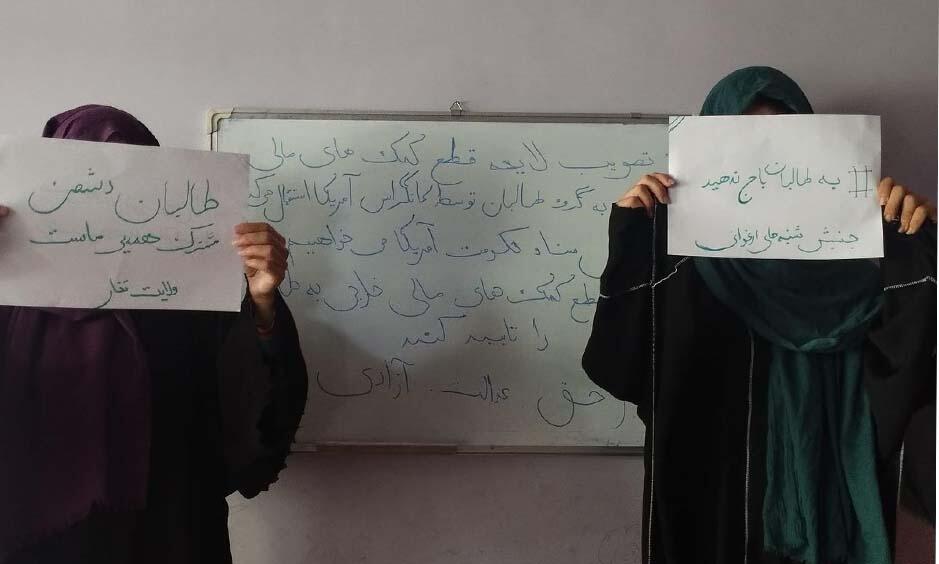 طالبان دشمن
مشترک ماست
ولایت تخار
تصویب لایحه قطع کمک های مالی
به گروه طالبان توسط کانگراس آمریکا استقبال
حکومت آمریکا می خواهیم
کمک های مالی خارجی به
را تایید کند
حق عدالت آزادی
# به طالبان باج ندهید
جنبش شنبه های ارغوانی